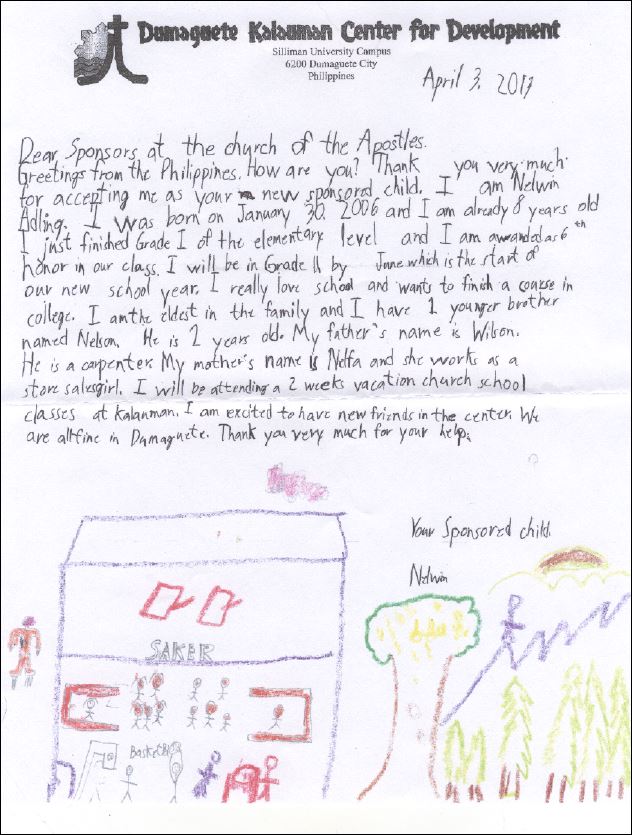 Dumaguete Kalauman Center for Development
Silliman University Campus
6200 Dumaguete City
Philippines
April 3, 2017
Dear Sponsors at the church of the Apostles.
Greetings from the Philippines. How are you? Thank you very much
for accepting me as your new sponsored child. I am Nelwin
Adling. I was born on January 30, 2006 and I am already 8 years old
I just finished Grade I of the elementary level and I am awarded as 6th
honor in our class. I will be in Grade II by June which is the start of
our new school year. I really love school and wants to finish a course in
college. I am the eldest in the family and I have 1 younger brother
named Nelson. He is 2 years old. My father's name is Wilson.
He is a carpenter. My mother's name is Nelfa and she works as a
store salesgirl. I will be attending a 2 weeks vacation church school
classes at Kalauman. I am excited to have new friends in the center. We
are all fine in Dumaguete. Thank you very much for your help.
Your Sponsored child.
Nelwin
SAKER